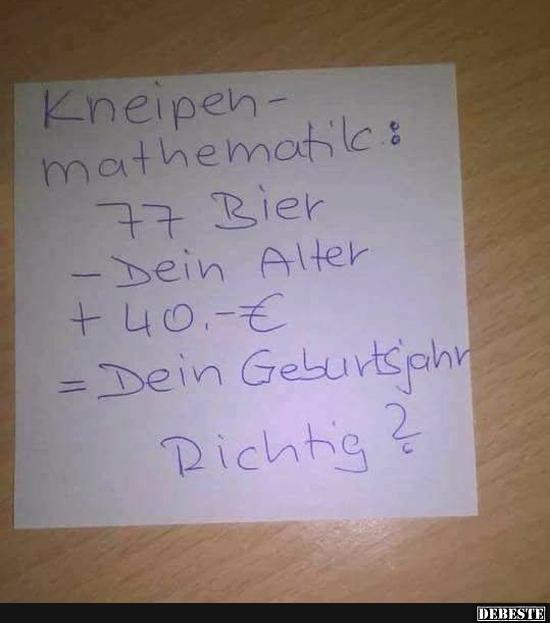 Kneipen-
mathematik:
77 Bier
- Dein Alter
+ 40.-€
= Dein Geburtsjahr
Richtig?
DEBESTE